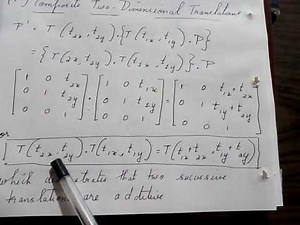 Composite Two-Dimensional Translations
P' = T(t2x, t2y).{T(t1x, t1y).P}
= {T(t2x, t2y).T(t1x, t1y)}.P
[1 0 t2x] [1 0 t1x] = [1 0 t1x+t2x]
[0 1 t2y] . [0 1 t2y] = [0 1 t1y+t2y]
[0 0 1] [0 0 1] [0 0 1]
or
T(t2x, t2y).T(t1x, t1y) = T(t1x+t2x, t1y+t2y)
which that two successive
translations are additive